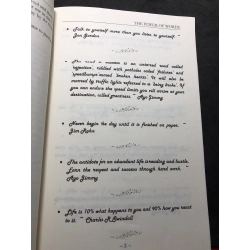 THE POWER OF WORDS
• Talk to yourself more than you listen to yourself. ~
Jim Gordon
• The road to success is an uneven road called
'rejection', riddled with potholes called 'failures' and
speedbumps named 'broken hearts'. It will also be
covered by traffic lights referred to as 'being broke'. If
you endure the speed limits you will arrive at your
destination, called greatness." ~ Ayo Jimmy
• Never begin the day until it is finished on paper. ~
Jim Rohn
• The antidote for an abundant life is reading and hustle.
Learn the respect and success through hard work. ~
Ayo Jimmy
• Life is 10% what happens to you and 90% how you react
to it." ~ Charles R. Swindoll